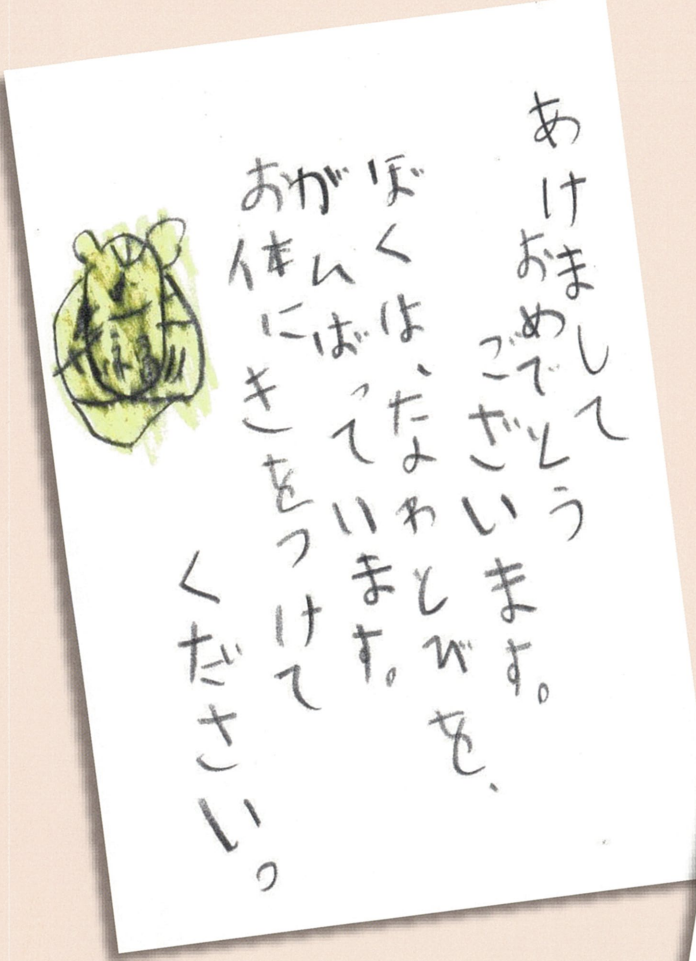 あけまして
おめでとう
ございます。
ぼくは、なわとびを、
がんばっています。
お体にきをつけて
ください。